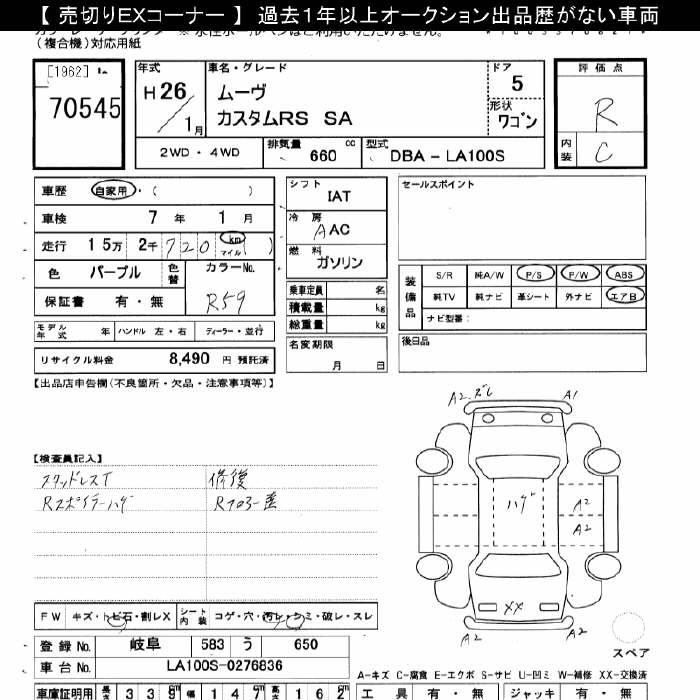 【 売切りEXコーナー 】 過去１年以上オークション出品歴がない車両
(複合機)対応用紙
[1962]
70545
年式
H 26 / 1月
車名・グレード
ムーヴ
カスタムRS SA
ドア
5
形状
ワゴン
2WD ・ 4WD
排気量 660 cc
型式 DBA - LA100S
評価点
R
内装
C
車歴 自家用 ・ ( )
車検 7 年 1 月
走行 15万 2千 720 km マイル ( )
色 パープル 色替
カラーNo. R59
保証書 有 ・ 無
モデル年式 年 ハンドル 左・右 ディーラー・並行
リサイクル料金 8,490 円 預託済
シフト
IAT
冷房
AAC
燃料
ガソリン
乗車定員 名
積載量 kg
総重量 kg
名変期限
月 日
セールスポイント
装備品
S/R 純A/W P/S P/W ABS
純TV 純ナビ 革シート 外ナビ エアB
ナビ型番：
後日品
【出品店申告欄(不良箇所・欠品・注意事項等)】
【検査員記入】
スタッドレスT
Rスポイラーハゲ
修復
Rフロアー歪
A2 ズレ
A1
ハゲ
A2
A2
XX
A2
A2
スペア
FW キズ・トビ石・割レX
シート内装 コゲ・穴・汚レ・シミ・破レ・スレ
登録No. 岐阜 583 う 650
車台No. LA100S-0276836
A-キズ C-腐食 E-エクボ S-サビ U-凹ミ W-補修 XX-交換済
車庫証明用 長さ 3 3 9 幅 1 4 7 高さ 1 6 2
工具 有 ・ 無 ジャッキ 有 ・ 無